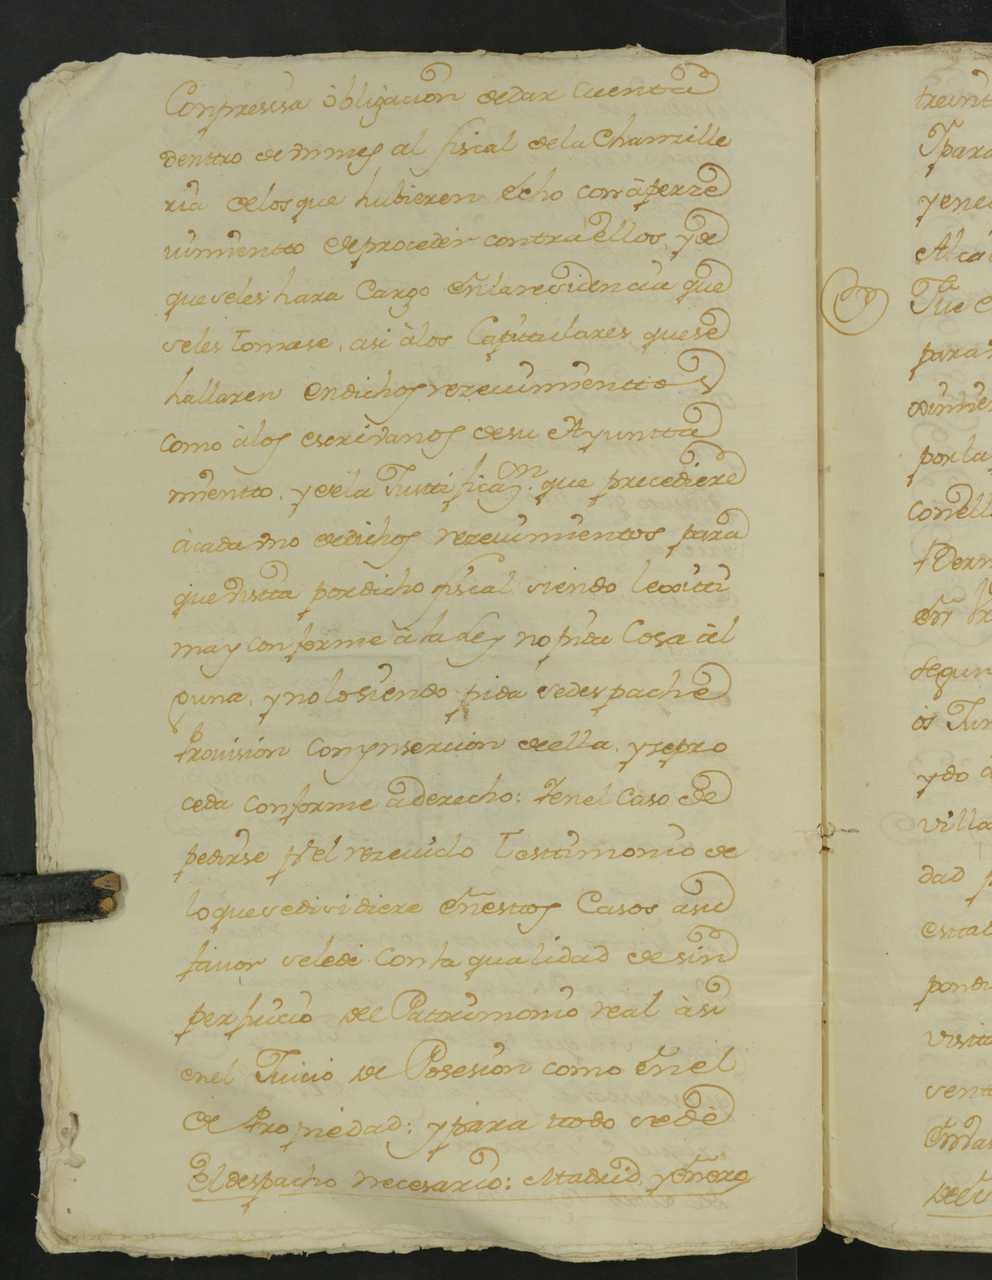 Conpresisa obligacion dedar cuenta
dentro de vn mes al fiscal dela Chanzille
ria delos que hubieren echo con aperze
uimientto de proceder contra ellos, y de
que seles hara Cargo en la residencia que
seles tomase, asi a los Capitulares que se
hallaren en dichos rezeuimienttos
como a los escrivanos de su Ayuntta
mientto, y de la Justtificazn. que precediere
a cada vno de dichos rezeuimientos para
que vistta por dicho fiscal siendo lexitti
ma y conforme a la ley no pida Cosa al
guna, y no lo siendo pida se despache
Provision con ynsercion de ella, y se pro
ceda conforme a derecho: Y en el caso de
pedirse pr el rezeuido Testtimonio de
lo que se dividiere en esttos Casos a su
favor se le de con la qualidad de sin
perjuicio del Patrimonio real asi
en el Juicio de Posesion como en el
de Propiedad: y para ttodo se de
el despacho necesario: Madrid y enero
treint
Y para
y ene
Alca
Fue
para
por la
Con ell
segun
villa
dad p
esttab
pondi
visitt